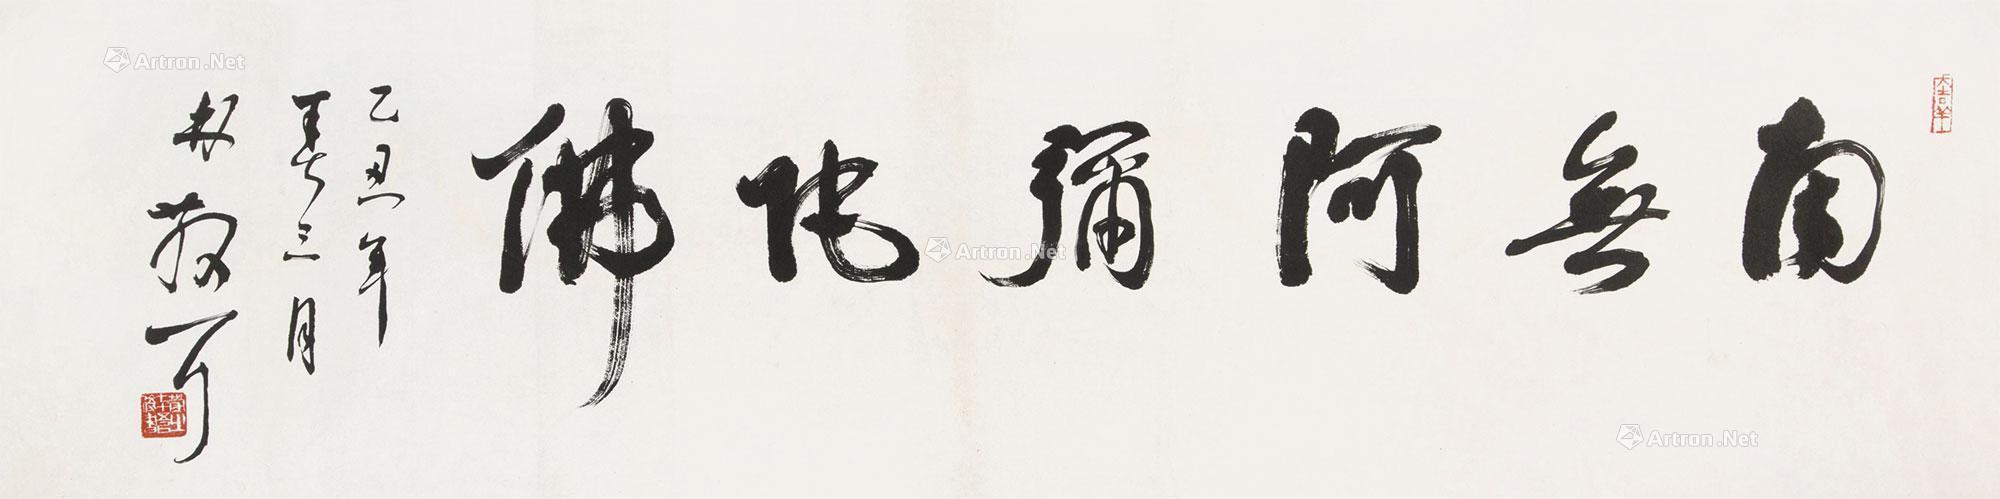 南無阿彌陀佛
乙丑年
春三月
林散耳
大吉羊
Artron.Net
Artron.Net
Artron.Net